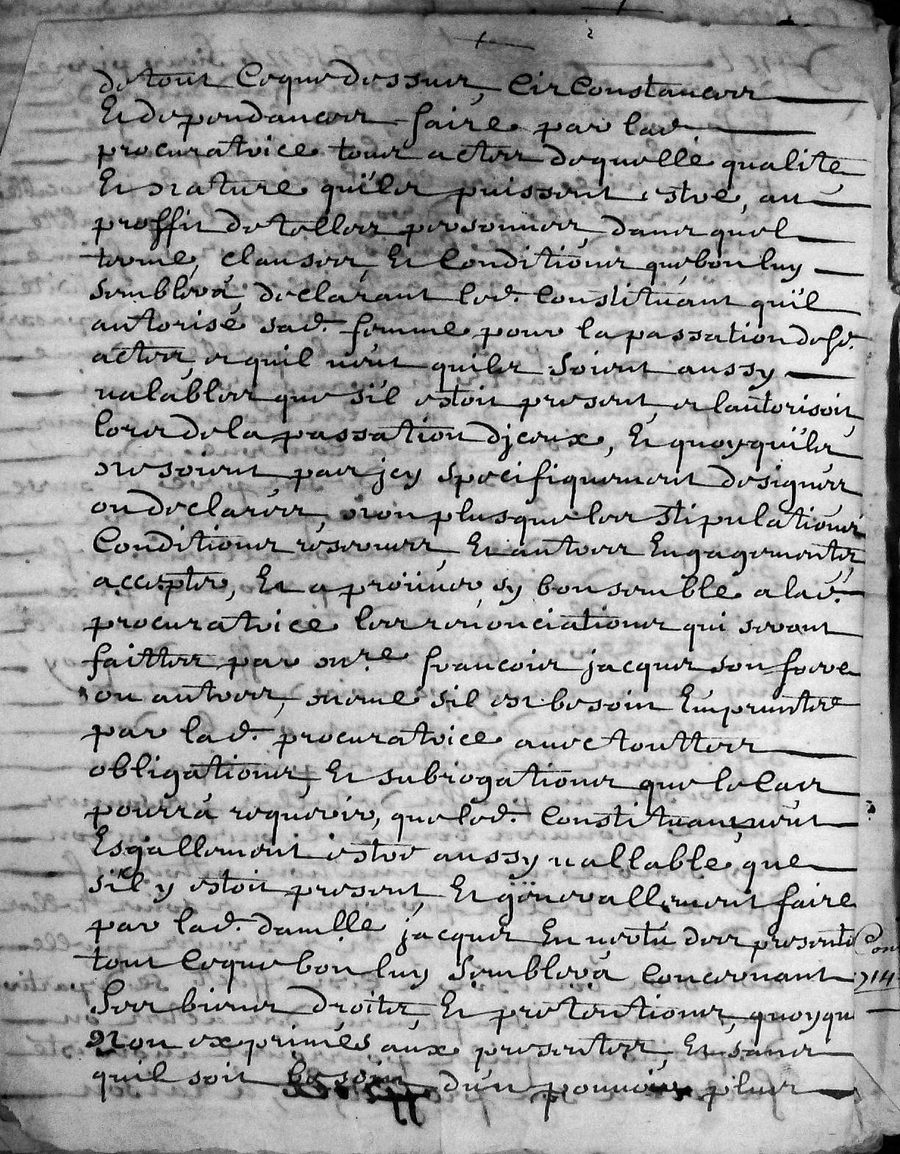 de tout Ceque dessus, Circonstances
Et dependances faire par lad.
procuratrice tous actes dequelle qualite
Et nature qu'ils puissent estre, au
proffit de telles personnes, dans quel
terme, clauses, Et Conditions que bon luy
Semblera, declarant led. Constituant qu'il
autorise sad. femme pour la passation desd.
actes, et quil veut quils Soient aussy
valables que s'il estoit present et lautorisoit
lors de la passation d'jceux, Et quoyquils
ne soient par jcy specifiquement designés
ou declarés, non plus que les stipulations
Conditions réserves, Et autres Engagements,
accepter, Et aproüver sy bon semble a lad.
procuratrice les renonciations qui seront
faittes par mre. francois jacques son frere
ou autres, meme s'il est besoin Emprunter
par lad. procuratrice avec touttes
obligations, Et subrogations que le Cas
pourra requerir, que led. Constituant veut
Esgallement estre aussy vallable, que
s'il y estoit present, Et generallement faire
par lad. damlle jacques En vertu des presentes
tout Ceque bon luy Semblera Concernant
Ses biens droits, Et pretentions, quoyque
Non exprimés aux presentes, Et sans
quil soit besoin d'un pouvoir plus
714